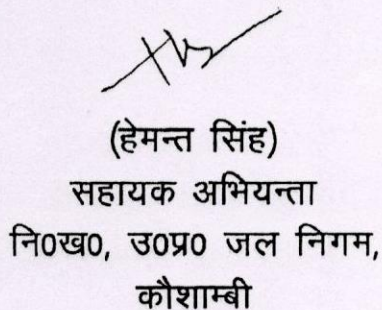 (हेमन्त सिंह)
सहायक अभियन्ता
नि0ख0, उ0प्र0 जल निगम,
कौशाम्बी